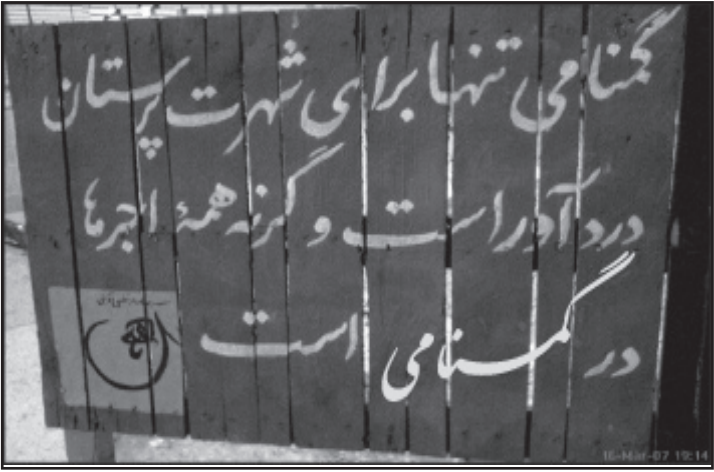 گمنامی تنها برای شهرت پرستان
درد آور است و گرنه همهٔ اجرها
در گمنامی است
16-Mar-07 19:14